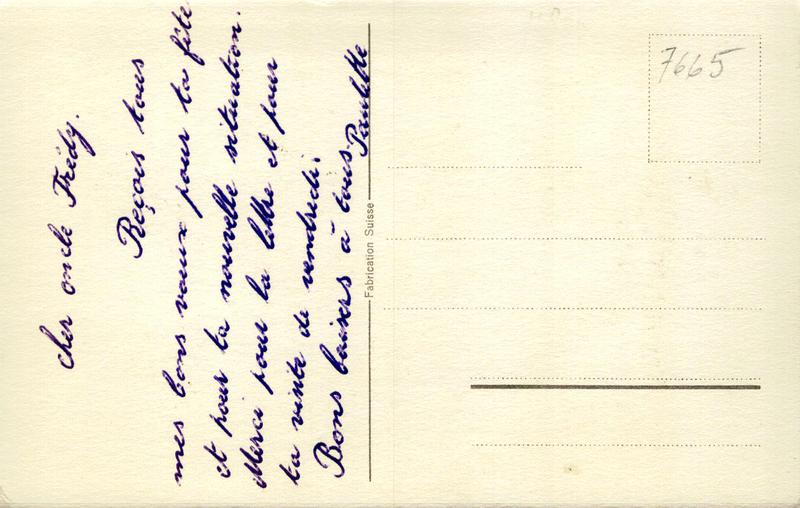 cher oncle Frédy.
Reçois tous
mes bons vœux pour ta fête
et pour ta nouvelle situation.
Merci pour la lettre et pour
ta visite de vendredi.
Bons baisers à tous. Paulette
Fabrication Suisse
7665